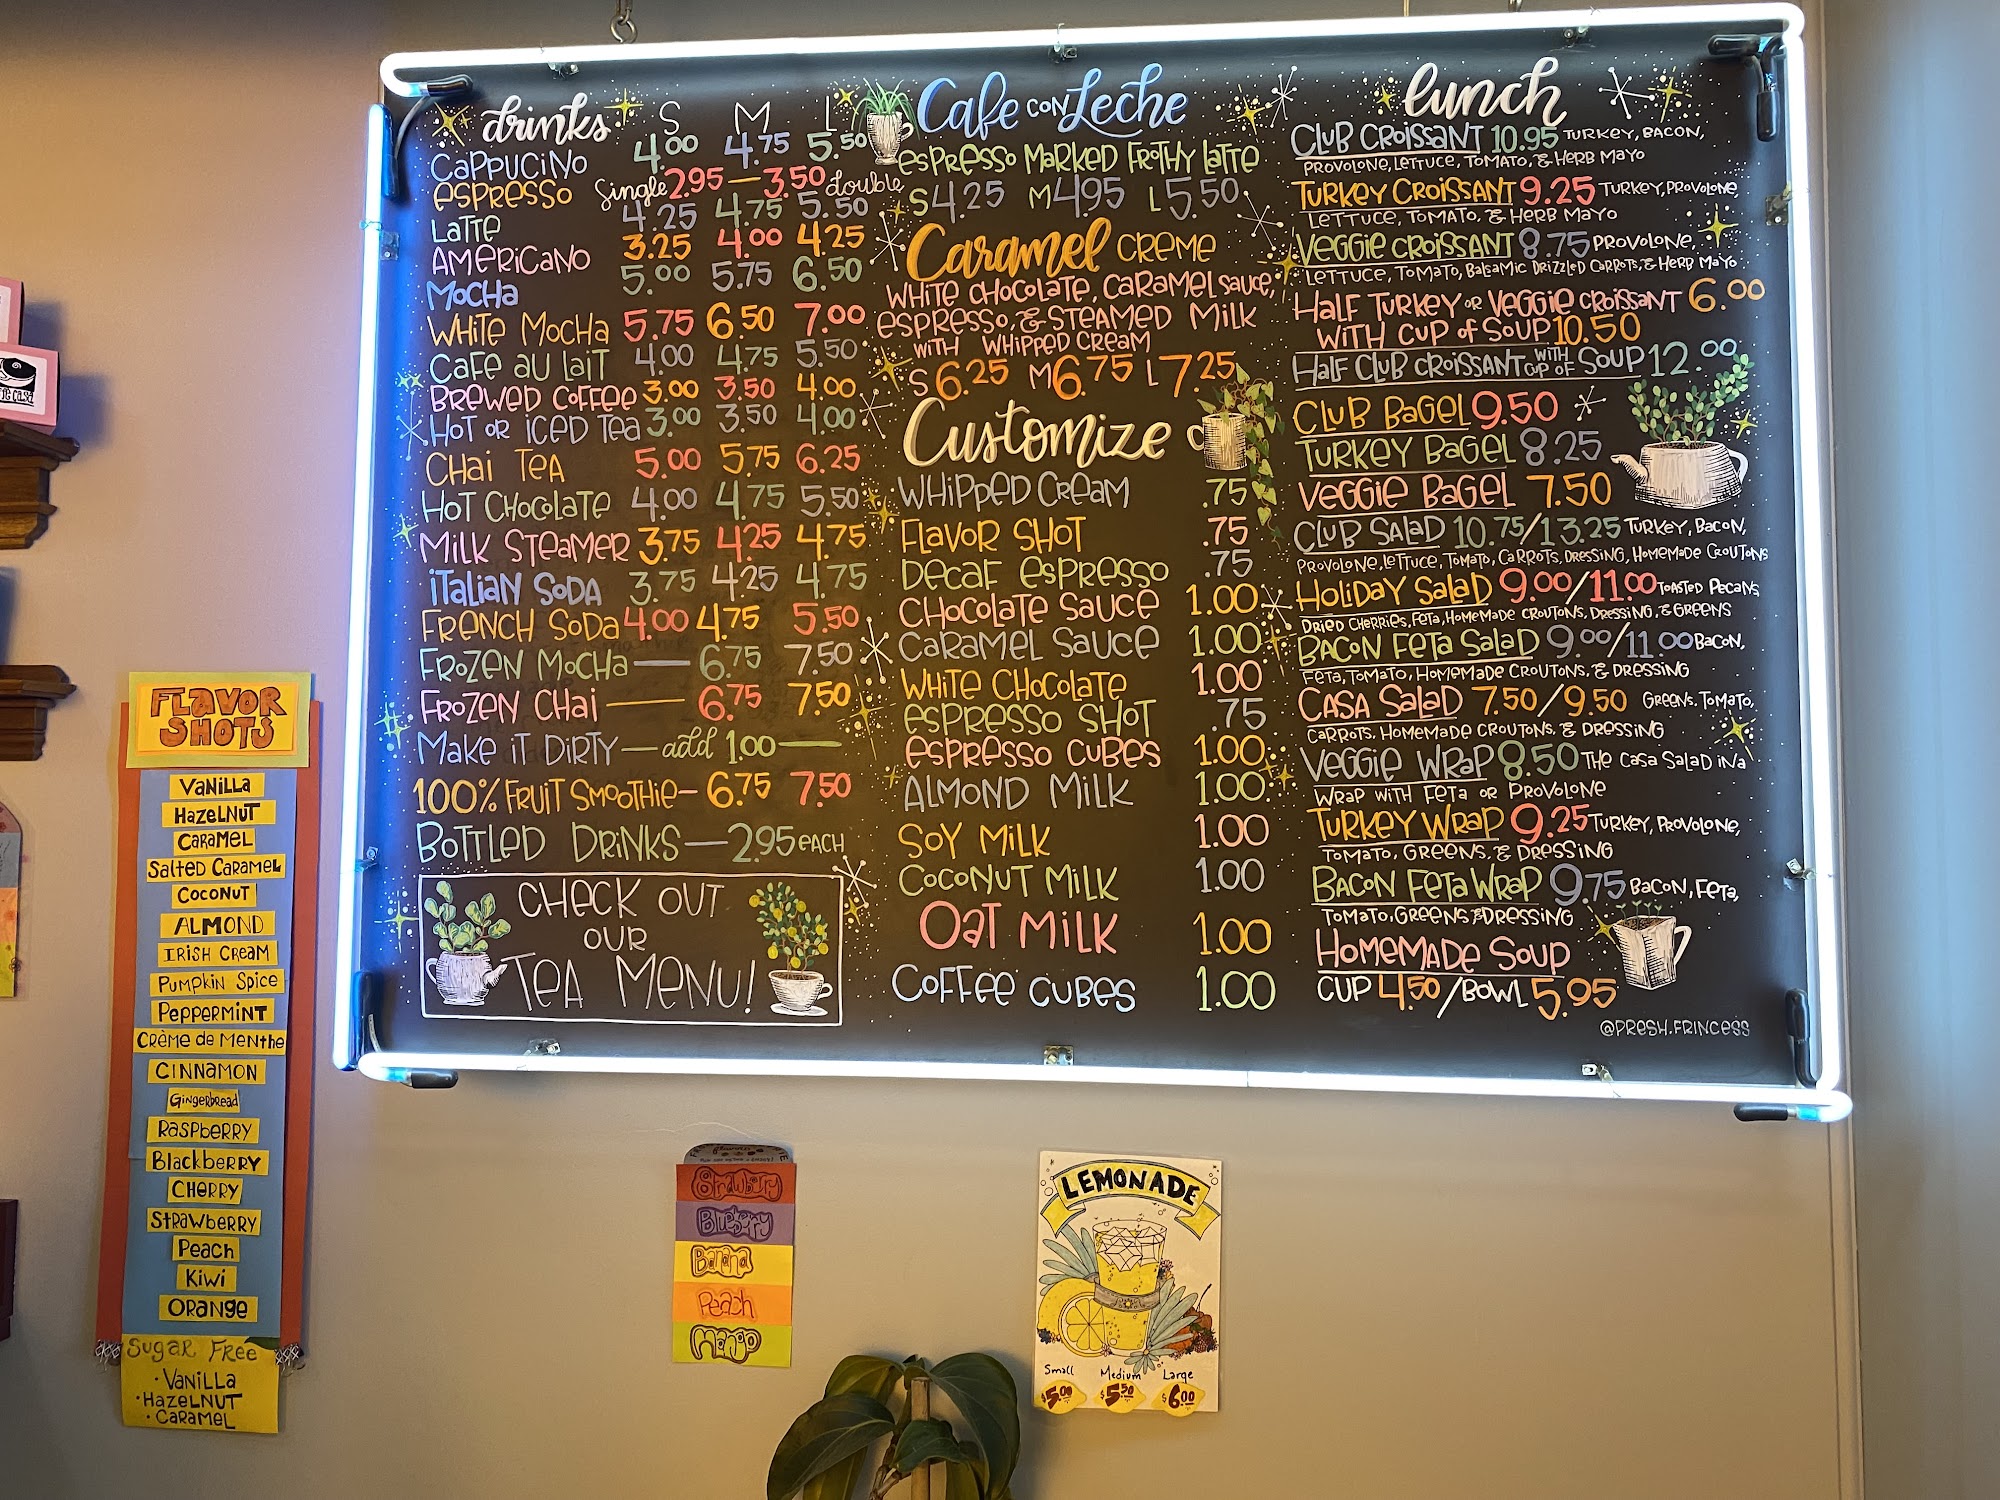 drinks S M L
Cappucino 4.00 4.75 5.50
Espresso Single 2.95 — 3.50 double
Latte 4.25 4.75 5.50
Americano 3.25 4.00 4.25
Mocha 5.00 5.75 6.50
White Mocha 5.75 6.50 7.00
Cafe au lait 4.00 4.75 5.50
Brewed Coffee 3.00 3.50 4.00
Hot or iced Tea 3.00 3.50 4.00
Chai Tea 5.00 5.75 6.25
Hot Chocolate 4.00 4.75 5.50
Milk Steamer 3.75 4.25 4.75
Italian Soda 3.75 4.25 4.75
French Soda 4.00 4.75 5.50
Frozen Mocha — 6.75 7.50
Frozen Chai — 6.75 7.50
Make it Dirty — add 1.00 —
100% Fruit Smoothie — 6.75 7.50
Bottled Drinks — 2.95 each
Check out
our
Tea Menu!
Cafe con Leche
Espresso Marked Frothy Latte
S 4.25 M 4.95 L 5.50
Caramel Creme
White Chocolate, Caramel Sauce,
Espresso, & Steamed Milk
with Whipped Cream
S 6.25 M 6.75 L 7.25
Customize
Whipped Cream .75
Flavor Shot .75
Decaf Espresso .75
Chocolate Sauce 1.00
Caramel Sauce 1.00
White Chocolate 1.00
Espresso Shot .75
Espresso Cubes 1.00
Almond Milk 1.00
Soy Milk 1.00
Coconut Milk 1.00
Oat Milk 1.00
Coffee Cubes 1.00
lunch
Club Croissant 10.95 Turkey, Bacon,
Provolone, Lettuce, Tomato, & Herb Mayo
Turkey Croissant 9.25 Turkey, Provolone
Lettuce, Tomato, & Herb Mayo
Veggie Croissant 8.75 Provolone,
Lettuce, Tomato, Balsamic Drizzled Carrots, & Herb Mayo
Half Turkey or Veggie Croissant 6.00
with Cup of Soup 10.50
Half Club Croissant with cup of Soup 12.00
Club Bagel 9.50
Turkey Bagel 8.25
Veggie Bagel 7.50
Club Salad 10.75/13.25 Turkey, Bacon,
Provolone, Lettuce, Tomato, Carrots, Dressing, Homemade Croutons
Holiday Salad 9.00/11.00 Toasted Pecans,
Dried Cherries, Feta, Homemade Croutons, Dressing, & Greens
Bacon Feta Salad 9.00/11.00 Bacon,
Feta, Tomato, Homemade Croutons, & Dressing
Casa Salad 7.50/9.50 Greens, Tomato,
Carrots, Homemade Croutons, & Dressing
Veggie Wrap 8.50 The Casa Salad in a
Wrap with Feta or Provolone
Turkey Wrap 9.25 Turkey, Provolone,
Tomato, Greens, & Dressing
Bacon Feta Wrap 9.75 Bacon, Feta,
Tomato, Greens & Dressing
Homemade Soup
Cup 4.50/Bowl 5.95
@presh.frincess
Flavor
Shots
Vanilla
Hazelnut
Caramel
Salted Caramel
Coconut
Almond
Irish Cream
Pumpkin Spice
Peppermint
Crème de Menthe
Cinnamon
Gingerbread
Raspberry
Blackberry
Cherry
Strawberry
Peach
Kiwi
Orange
Sugar Free
· Vanilla
· Hazelnut
· Caramel
Strawberry
Blueberry
Banana
Peach
Mango
Lemonade
Small Medium Large
$5.00 $5.50 $6.00